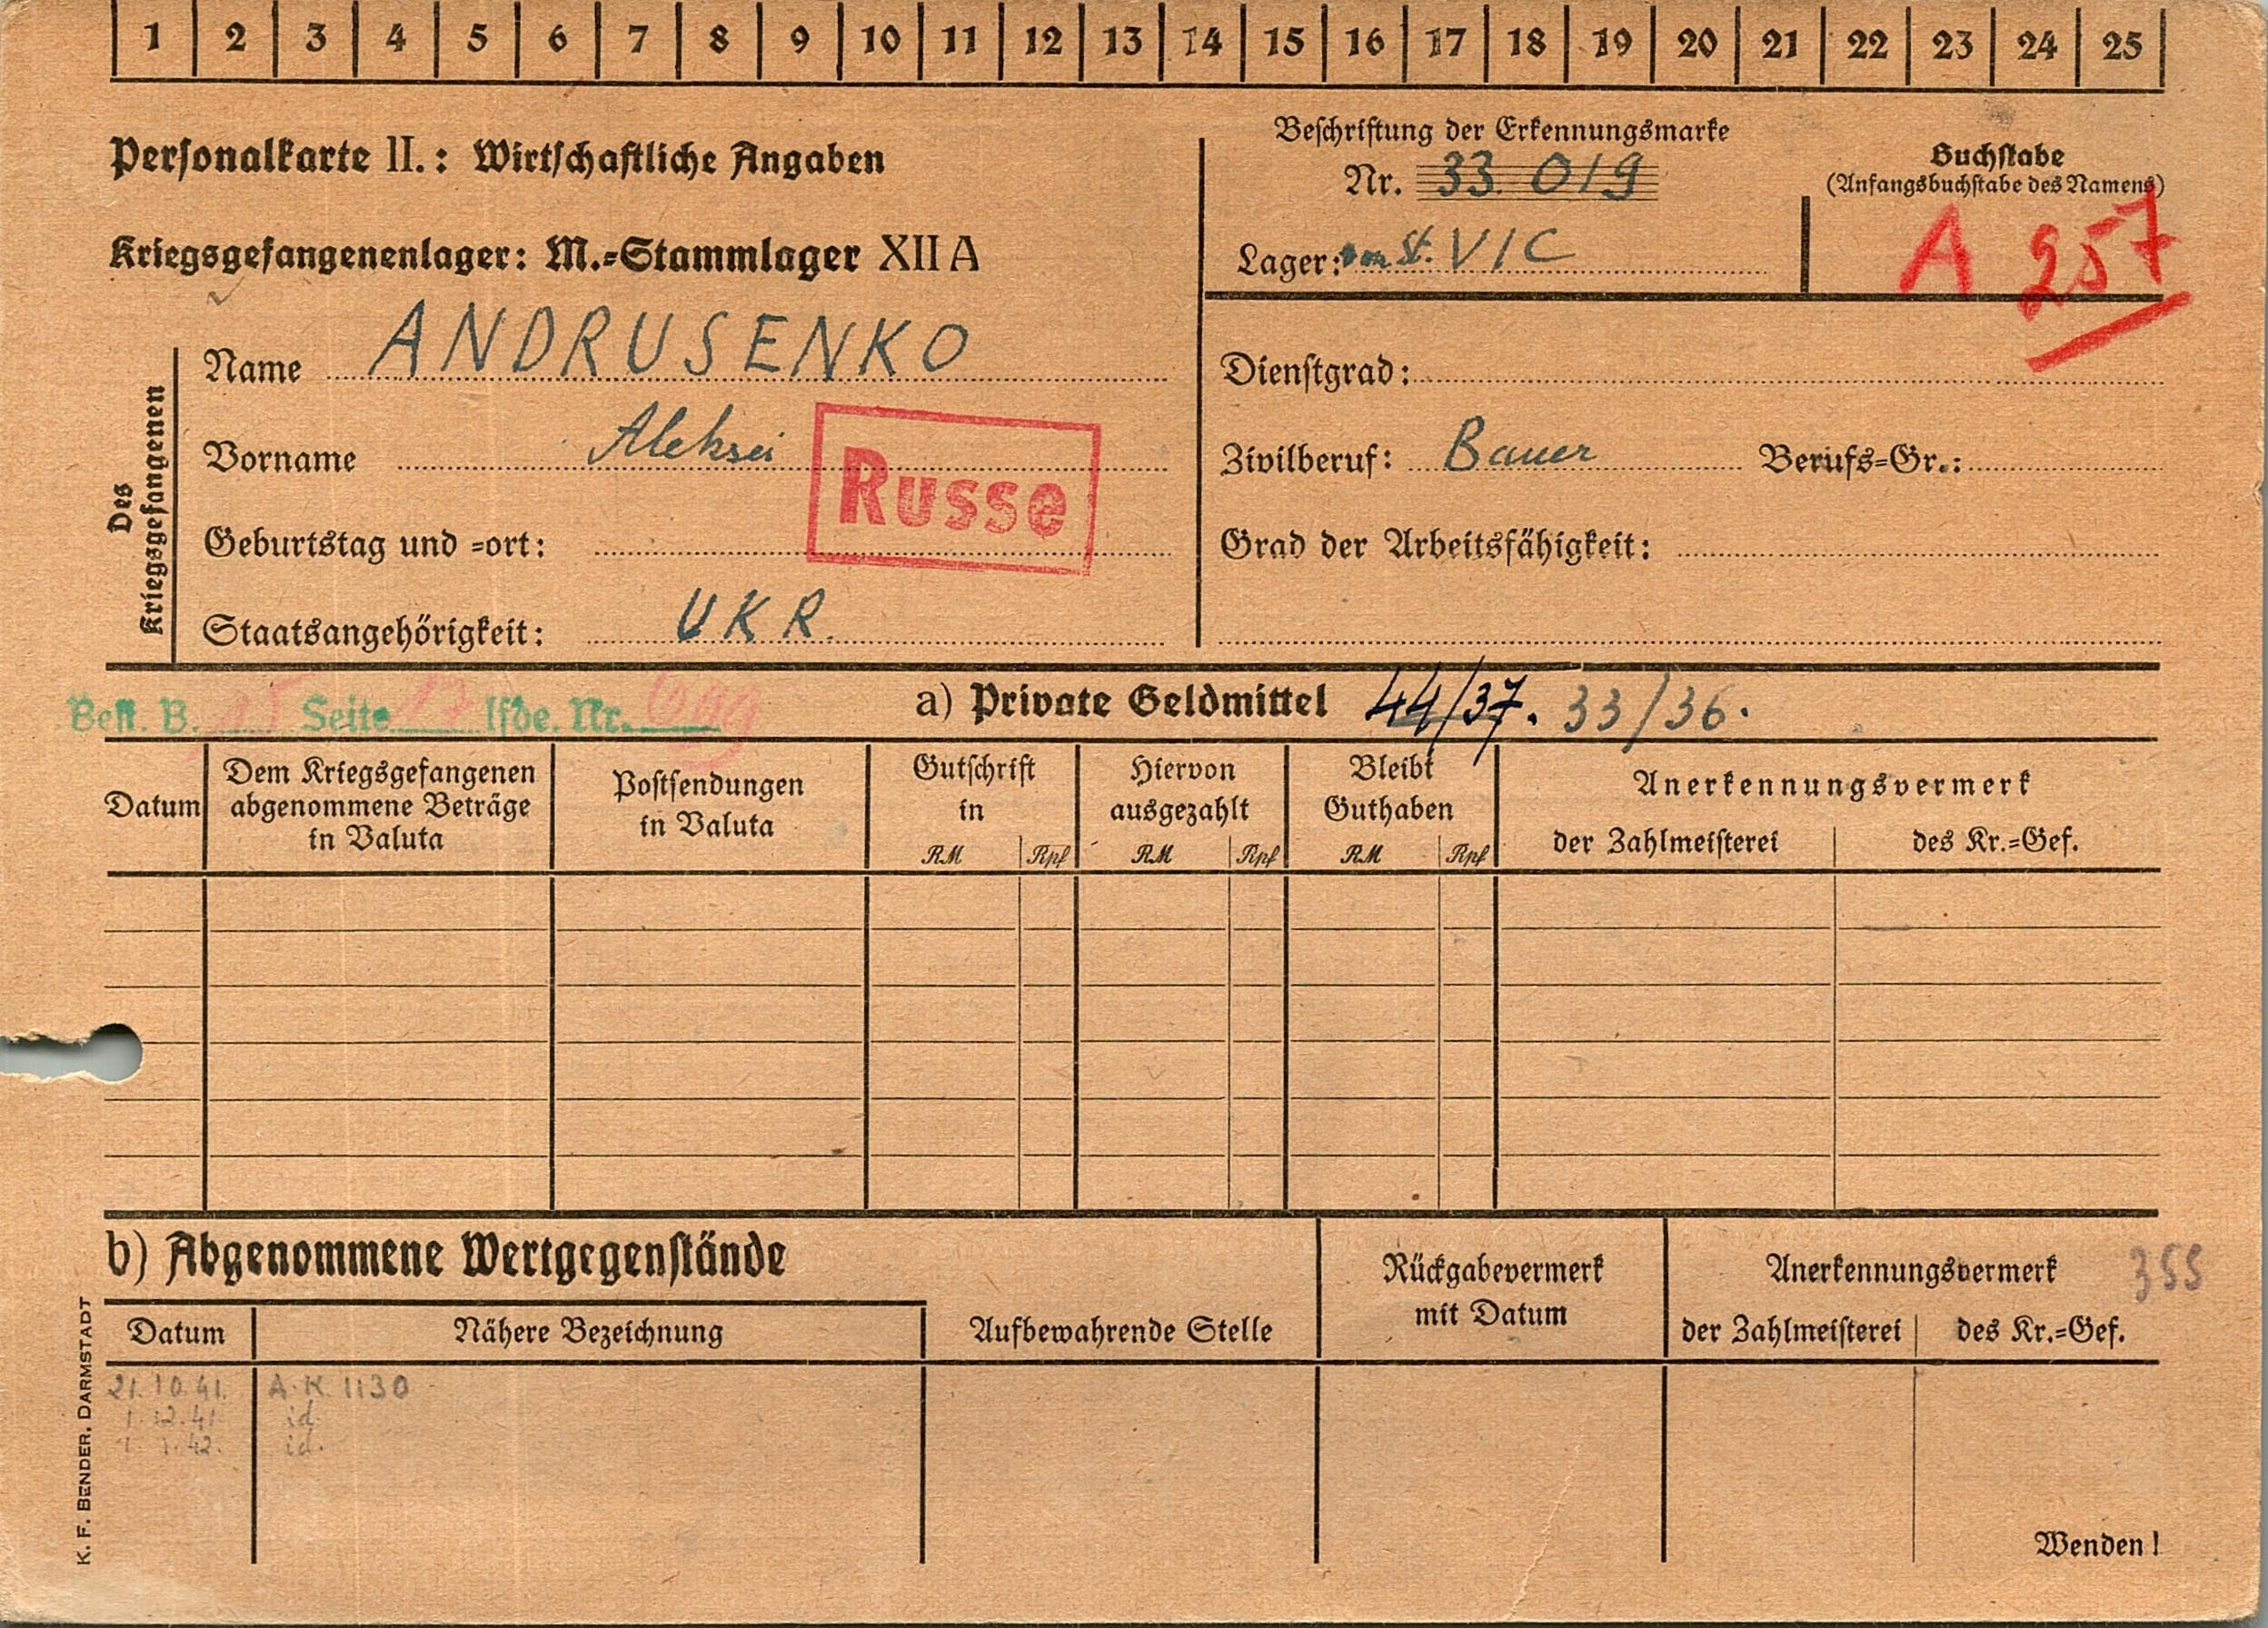 1 2 3 4 5 6 7 8 9 10 11 12 13 14 15 16 17 18 19 20 21 22 23 24 25
Personalkarte II.: Wirtschaftliche Angaben
Kriegsgefangenenlager: M.=Stammlager XII A
Beschriftung der Erkennungsmarke
Nr. 33 019
Lager: von St. VI C
Buchstabe
(Anfangsbuchstabe des Namens)
A 257
Des Kriegsgefangenen
Name ANDRUSENKO
Vorname Aleksei
Russe
Geburtstag und =ort:
Staatsangehörigkeit: UKR.
Dienstgrad:
Zivilberuf: Bauer Berufs=Gr.:
Grad der Arbeitsfähigkeit:
Best. B. Seite lfde. Nr.
a) Private Geldmittel 44/37. 33/36.
Datum
Dem Kriegsgefangenen
abgenommene Beträge
in Valuta
Postsendungen
in Valuta
Gutschrift
in
RM Rpf
Hiervon
ausgezahlt
RM Rpf
Bleibt
Guthaben
RM Rpf
Anerkennungsvermerk
der Zahlmeisterei des Kr.=Gef.
b) Abgenommene Wertgegenstände
Datum Nähere Bezeichnung
Aufbewahrende Stelle
Rückgabevermerk
mit Datum
Anerkennungsvermerk
der Zahlmeisterei des Kr.=Gef.
355
21.10.41. A.K. 1130
1.12.41 id.
1.1.42. id.
K. F. BENDER, DARMSTADT
Wenden!